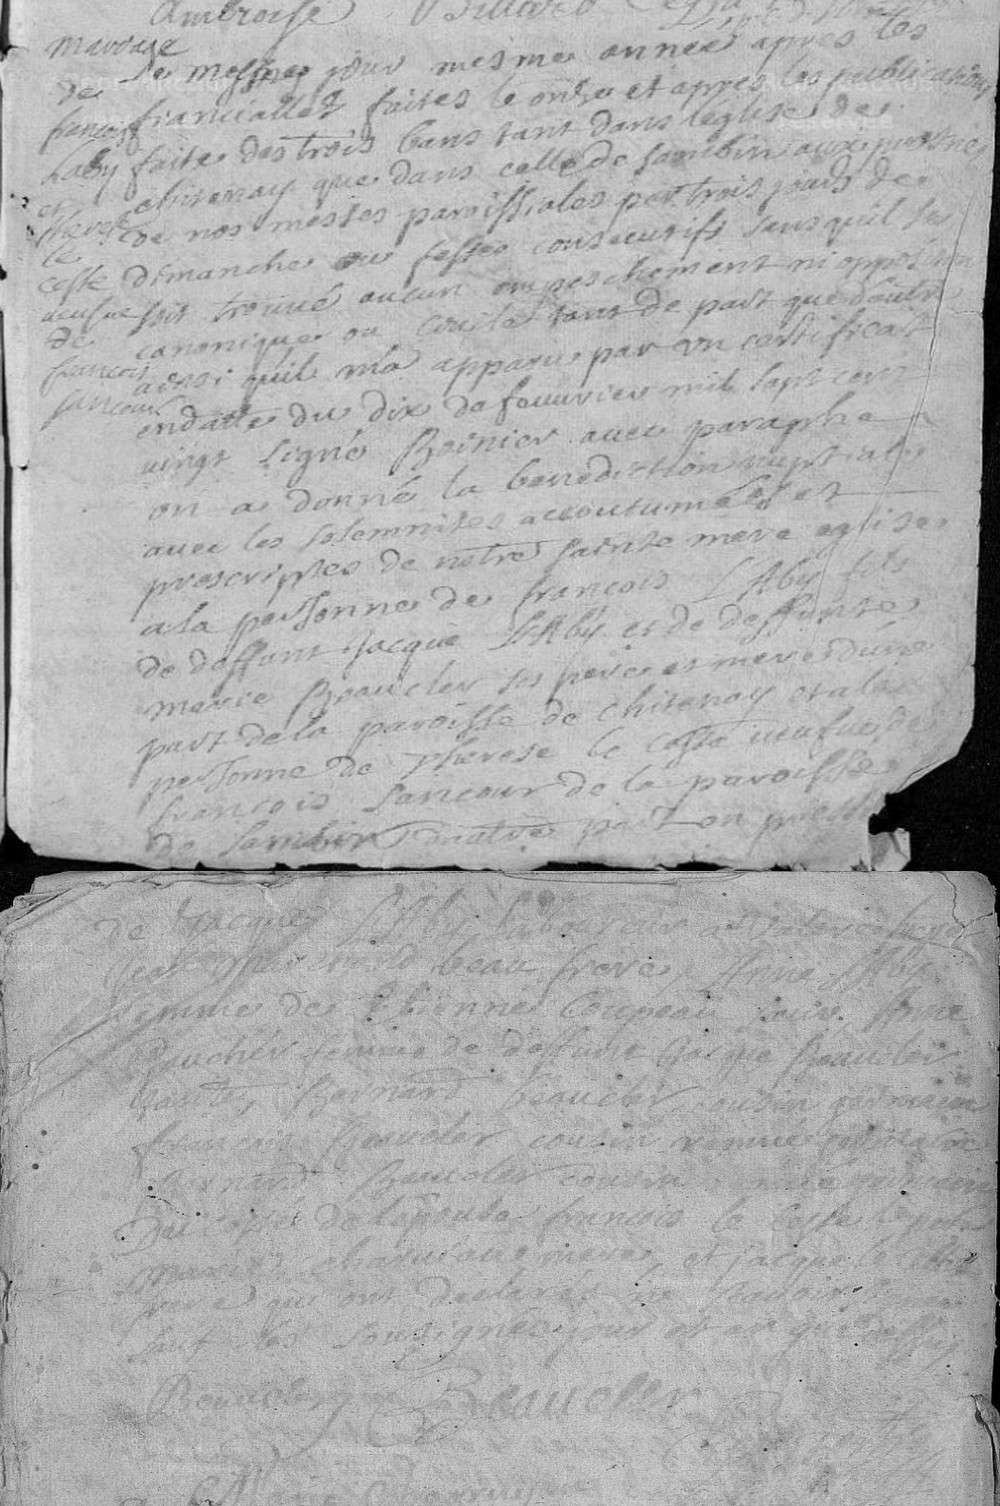 Ambroise Billard
mariage
de
françois
Laby
et
therese
le
coste
veufue
de
françois
sancour
Le mesme jour mesme annee apres les
fiancialles faites le onze et apres les publications
faite des trois bans tant dans leglise de
chitenay que dans celle de sambin aux prosne
de nos messes paroissiales par trois jours de
dimanche ou festes consecutifs sans quil se
soit trouué aucun empeschement ni opposition
canonique ou ciuile tant de part que dautre
aussi quil ma apparu par un certificat
endatte du dix de feuurier mil sept cent
uingt signé Boinier auec paraphe
on a donné la benediction nuptiale
auec les solemnites accoutumées et
prescriptes de notre sainte mere eglise
a la personne de françois LAby fils
de deffunt Jacque LAby et de deffunte
marie Beaucler ses pere et mere dune
part de la paroisse de chitenay et a la
personne de therese le coste ueufue de
françois sancour de la paroisse
de sambin dautre part en presence
de Jacque LAby laboureur
beau frere, Anne LAby
femme de Etienne Coupeau soeur, Anne
femme de deffunt Jacque Beaucler
tante, Bernard beaucler cousin germain
françois Beaucler cousin
Bernard Beaucler cousin
Du costé de lepouse françois le coste le pere
marie mere, et jacque le coste
frere qui ont declarés ne scauoir
sauf les soussignes jour et an que dessus
Beaucler